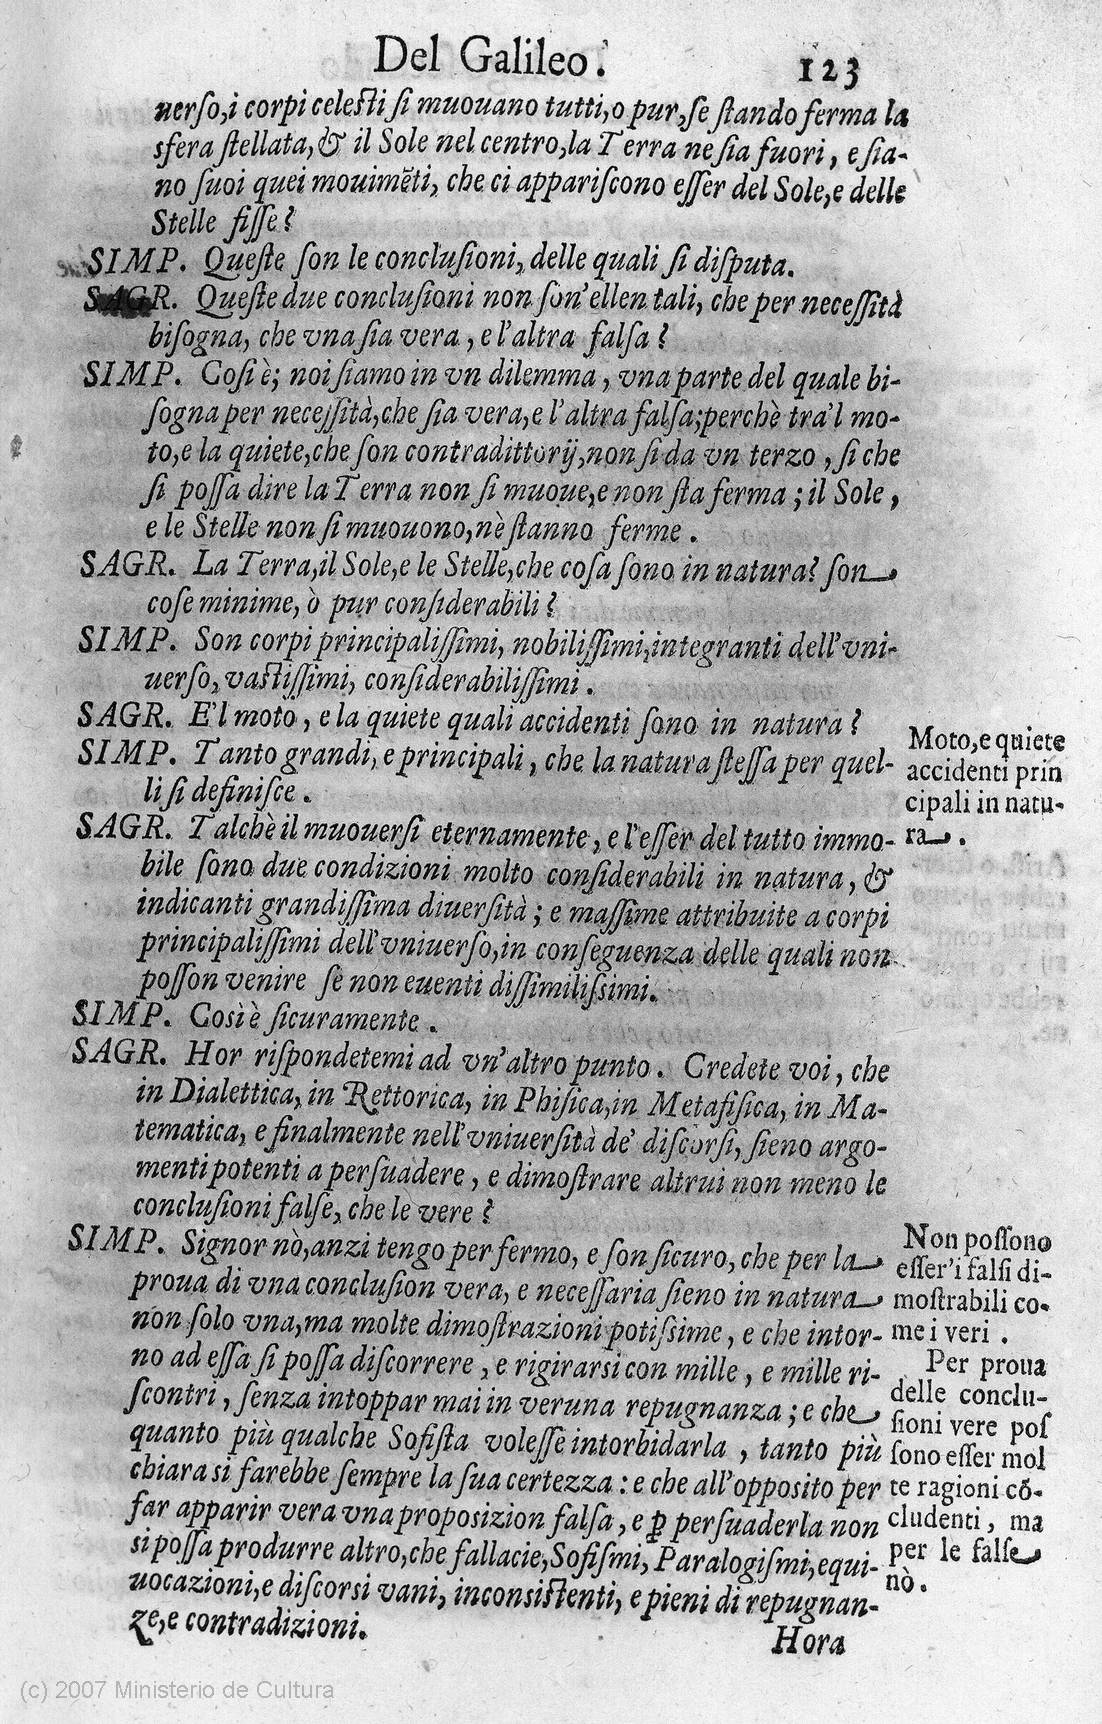 Del Galileo.
123
uerso,i corpi celesti si muouano tutti,o pur,se stando ferma la
sfera stellata,& il Sole nel centro,la Terra ne sia fuori, e sia-
no suoi quei mouimẽti, che ci appariscono esser del Sole,e delle
Stelle fisse?
SIMP. Queste son le conclusioni, delle quali si disputa.
SAGR. Queste due conclusioni non son'ellen tali, che per necessità
bisogna, che vna sia vera, e l'altra falsa?
SIMP. Cosi è; noi siamo in vn dilemma, vna parte del quale bi-
sogna per necessità,che sia vera,e l'altra falsa;perchè tra'l mo-
to,e la quiete,che son contradittorij,non si da vn terzo, si che
si possa dire la Terra non si muoue,e non sta ferma; il Sole,
e le Stelle non si muouono,nè stanno ferme.
SAGR. La Terra,il Sole,e le Stelle,che cosa sono in natura? son
cose minime, ò pur considerabili?
SIMP. Son corpi principalissimi, nobilissimi,integranti dell'vni-
uerso, vastissimi, considerabilissimi.
SAGR. E'l moto, e la quiete quali accidenti sono in natura?
SIMP. Tanto grandi, e principali, che la natura stessa per quel-
li si definisce.
SAGR. Talchè il muouersi eternamente, e l'esser del tutto immo-
bile sono due condizioni molto considerabili in natura, &
indicanti grandissima diuersità; e massime attribuite a corpi
principalissimi dell'vniuerso,in conseguenza delle quali non
posson venire se non euenti dissimilissimi.
SIMP. Così è sicuramente.
SAGR. Hor rispondetemi ad vn'altro punto. Credete voi, che
in Dialettica, in Rettorica, in Phisica,in Metafisica, in Ma-
tematica, e finalmente nell'vniuersità de' discorsi, sieno argo-
menti potenti a persuadere, e dimostrare altrui non meno le
conclusioni false, che le vere?
SIMP. Signor nò,anzi tengo per fermo, e son sicuro, che per la
proua di vna conclusion vera, e necessaria sieno in natura
non solo vna,ma molte dimostrazioni potissime, e che intor-
no ad essa si possa discorrere, e rigirarsi con mille, e mille ri-
scontri, senza intoppar mai in veruna repugnanza; e che
quanto più qualche Sofista volesse intorbidarla, tanto più
chiara si farebbe sempre la sua certezza: e che all'opposito per
far apparir vera vna proposizion falsa, e ꝑ persuaderla non
si possa produrre altro,che fallacie,Sofismi, Paralogismi,equi-
uocazioni,e discorsi vani, inconsistenti, e pieni di repugnan-
ze,e contradizioni.
Hora
Moto,e quiete
accidenti prin
cipali in natu-
ra.
Non possono
esser'i falsi di-
mostrabili co-
me i veri.
Per proua
delle conclu-
sioni vere pos
sono esser mol
te ragioni cõ-
cludenti, ma
per le false
nò.
(c) 2007 Ministerio de Cultura